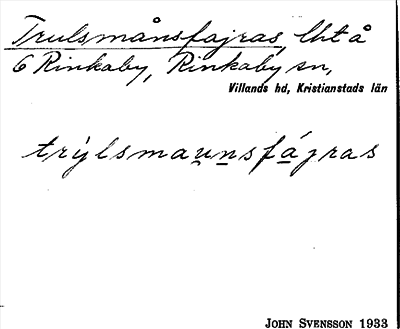 Trulsmånsfajras, lht å
6 Rinkaby, Rinkaby sn,
Villands hd, Kristianstads län
trỳlsmaṵn̲sfá̲jras
JOHN SVENSSON 1933